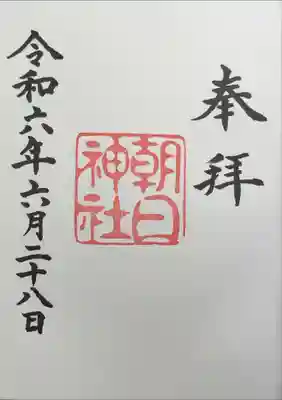 奉拝
朝日神社
令和六年六月二十八日